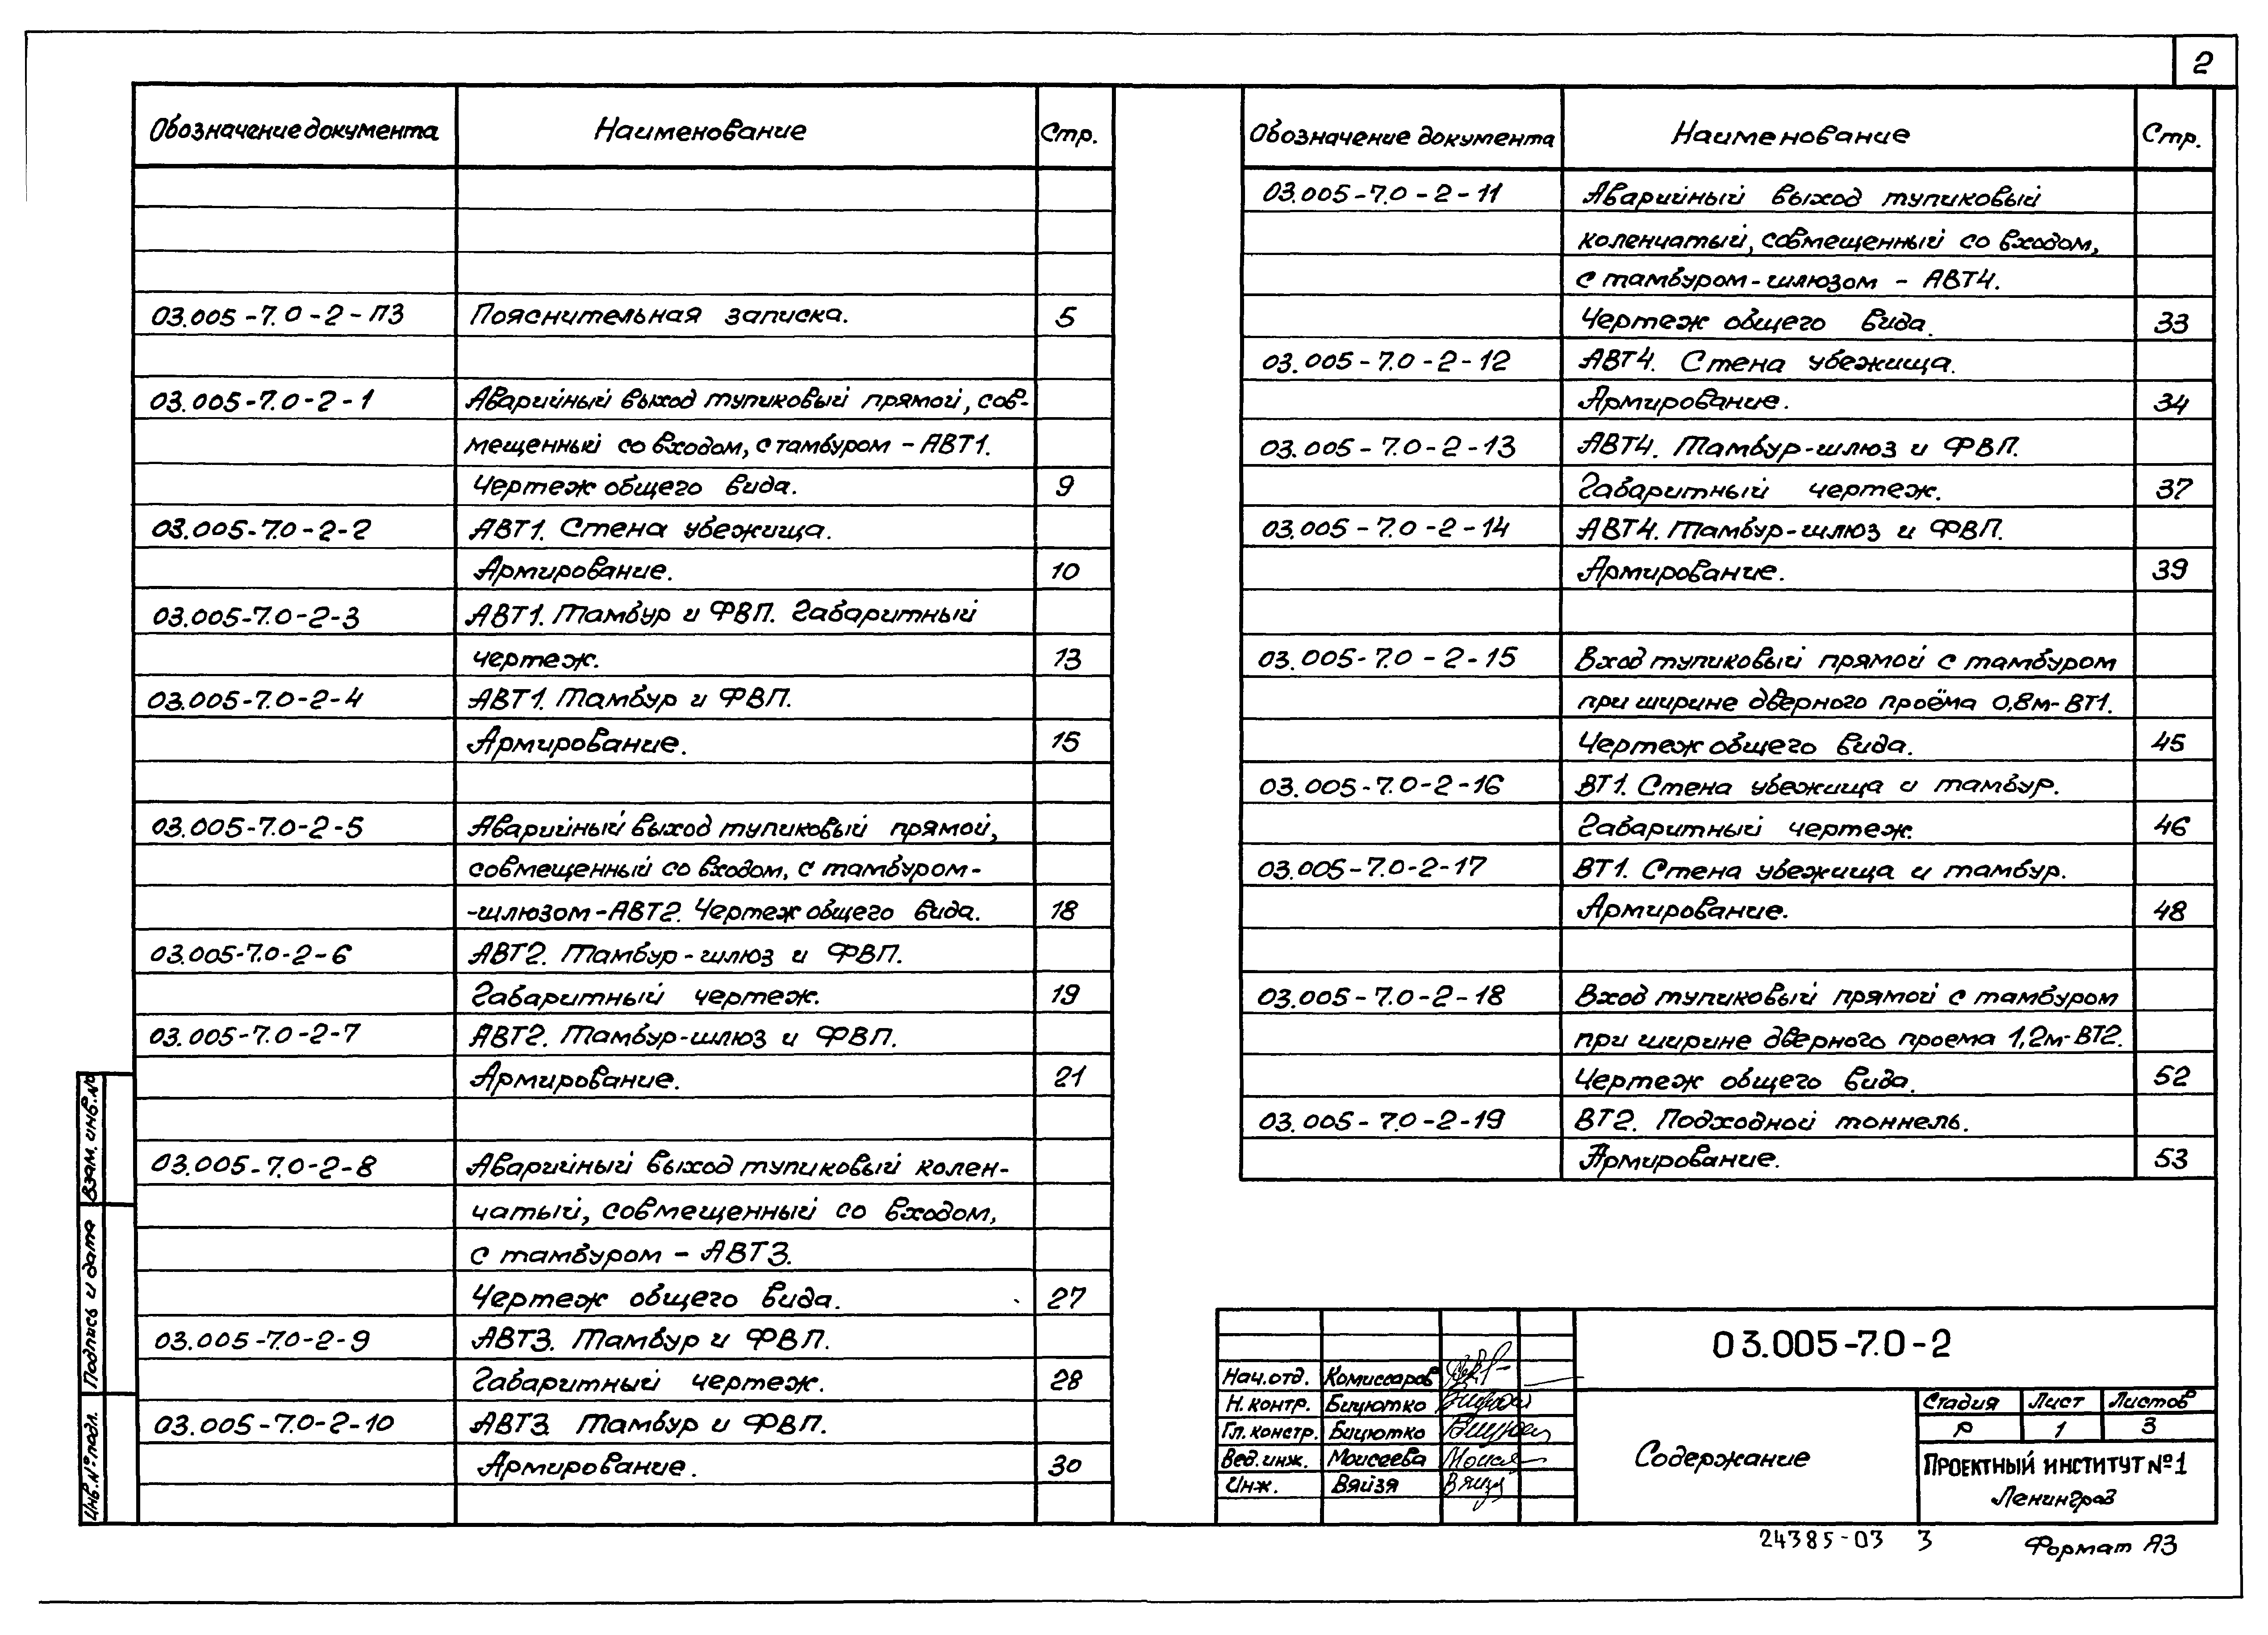 2
Обозначение документа Наименование Стр.
03.005-7.0-2-ПЗ Пояснительная записка. 5
03.005-7.0-2-1 Аварийный выход тупиковый прямой, сов-
мещенный со входом, с тамбуром - АВТ1.
Чертеж общего вида. 9
03.005-7.0-2-2 АВТ1. Стена убежища.
Армирование. 10
03.005-7.0-2-3 АВТ1. Тамбур и ФВП. Габаритный
чертеж. 13
03.005-7.0-2-4 АВТ1. Тамбур и ФВП.
Армирование. 15
03.005-7.0-2-5 Аварийный выход тупиковый прямой,
совмещенный со входом, с тамбуром-
-шлюзом-АВТ2. Чертеж общего вида. 18
03.005-7.0-2-6 АВТ2. Тамбур-шлюз и ФВП.
Габаритный чертеж. 19
03.005-7.0-2-7 АВТ2. Тамбур-шлюз и ФВП.
Армирование. 21
03.005-7.0-2-8 Аварийный выход тупиковый колен-
чатый, совмещенный со входом,
с тамбуром - АВТ3.
Чертеж общего вида. 27
03.005-7.0-2-9 АВТ3. Тамбур и ФВП.
Габаритный чертеж. 28
03.005-7.0-2-10 АВТ3. Тамбур и ФВП.
Армирование. 30
Обозначение документа Наименование Стр.
03.005-7.0-2-11 Аварийный выход тупиковый
коленчатый, совмещенный со входом,
с тамбуром-шлюзом - АВТ4.
Чертеж общего вида. 33
03.005-7.0-2-12 АВТ4. Стена убежища.
Армирование. 34
03.005-7.0-2-13 АВТ4. Тамбур-шлюз и ФВП.
Габаритный чертеж. 37
03.005-7.0-2-14 АВТ4. Тамбур-шлюз и ФВП.
Армирование. 39
03.005-7.0-2-15 Вход тупиковый прямой с тамбуром
при ширине дверного проёма 0,8м-ВТ1.
Чертеж общего вида. 45
03.005-7.0-2-16 ВТ1. Стена убежища и тамбур.
Габаритный чертеж. 46
03.005-7.0-2-17 ВТ1. Стена убежища и тамбур.
Армирование. 48
03.005-7.0-2-18 Вход тупиковый прямой с тамбуром
при ширине дверного проема 1,2м-ВТ2.
Чертеж общего вида. 52
03.005-7.0-2-19 ВТ2. Подходной тоннель.
Армирование. 53
Взам. инв. №
Подпись и дата
Инв. № подл.
03.005-7.0-2
Нач.отд. Комиссаров
Н.контр. Бицютко
Гл.констр. Бицютко
Вед.инж. Моисеева
Инж. Вяйзя
Содержание
Стадия Лист Листов
Р 1 3
ПРОЕКТНЫЙ ИНСТИТУТ №1
Ленинград
24385-03 3 Формат А3